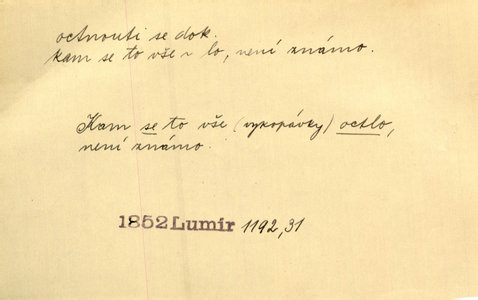 octnouti se dok.
kam se to vše ~ lo, není známo.
Kam se to vše (vykopávky) octlo,
není známo.
1852 Lumír 1192,31